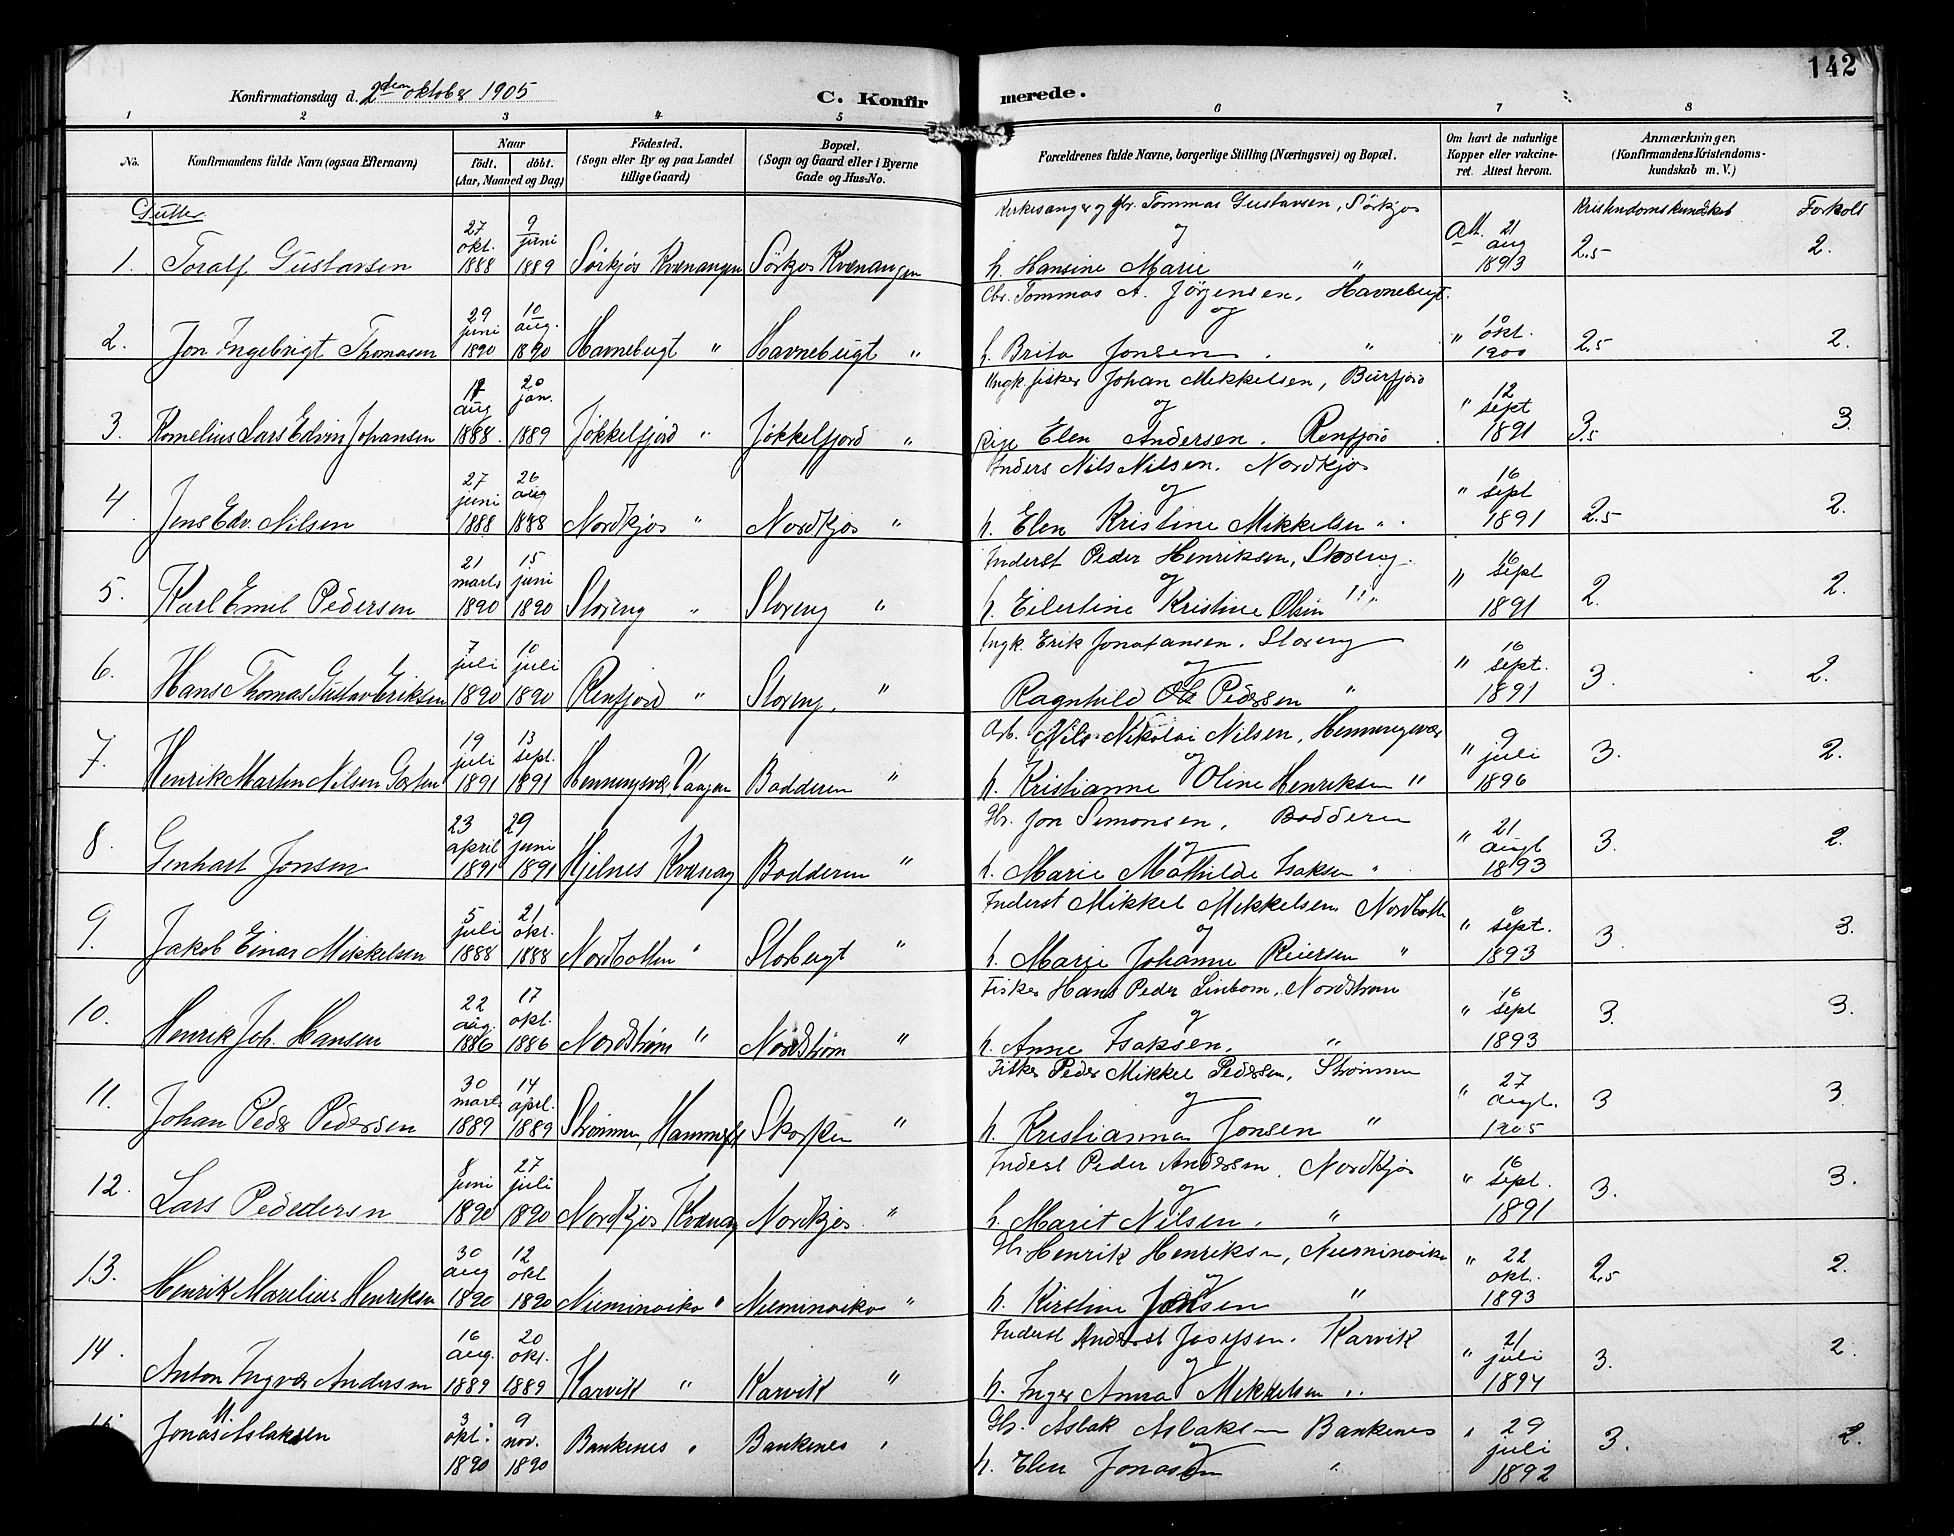 142
Konfirmationsdag d. 2den oktober 1905
C. Konfirmerede.
1 2 3 4 5 6 7 8
No.
Konfirmandens fulde Navn (ogsaa Efternavn)
Naar
födt. döbt.
(Aar, Maaned og Dag)
Födested.
(Sogn eller By og paa Landet
tillige Gaard)
Bopæl.
(Sogn og Gaard eller i Byerne
Gade og Hus-No.
Forældrenes fulde Navne, borgerlige Stilling (Næringsvei) og Bopæl.
Om havt de naturlige
Kopper eller vakcine-
ret. Attest herom.
Anmærkninger,
(Konfirmandens Kristendoms-
kundskab m. V.)
Gutter
Kristendomskundskab Forhold
1. Toralf Gustavsen 27 okt. 1888 9 juni 1889 Sörkjos Kvænangen Sörkjos Kvænangen
Kirkesanger og gbr. Tommas Gustavsen, Sörkjos
og
h. Hansine Marie "
Att. 21 aug 1893 2.5 2.
2. Jon Ingebrigt Thomasen 29 juni 1890 10 aug. 1890 Havnebugt " Havnebugt "
Gbr. Tommas A. Jörgensen, Havnebugt.
og
h. Brita Jonsen. "
" 10 okt. 1900 2.5 2.
3. Kornelius Lars Edvin Johansen aug 1888. 20 jan. 1889 Jökkelfjord " Jökkelfjord "
Ungk. fisker Johan Mikkelsen, Burfjord
og
Pige Elen Andersen. Renfjord
" 12 sept 1891 3.5 3.
4. Jens Edv. Nilsen 27 juni 1888 26 aug 1888 Nordkjos " Nordkjos "
Inders Nils Nilsen. Nordkjos
og
h. Elen Kristine Mikkelsen "
" 16 sept 1891 2.5 2.
5. Karl Emil Pedersen 21 marts 1890 15 juni 1890 Storeng " Storeng "
Inderst Peder Henriksen, Storeng.
og
h. Eilertine Kristine Olsen "
" 16 sept 1891 2. 2.
6. Hans Thomas Gustav Eriksen 7 juli 1890 10 juli 1890 Renfjord " Storeng. "
Ungk. Erik Jonatansen. Storeng
og
Ragnhild Pedersen "
" 16 sept. 1891 3. 2.
7. Henrik Martin Nilsen 19 juli 1891 13 sept. 1891 Henningsvær, Vaagan Badderen "
Arb. Nils Nikolai Nilsen, Henningsvær
og
h. Kristianne Oline Henriksen "
" 9 juli 1896 3. 2.
8. Genhart Jonsen 23 april 1891 29 juni 1891 Hjelnes Kvænang Badderen "
Gbr. Jon Simonsen, Badderen
og
h. Marie Mathilde Isaksen "
" 21 augt 1893 3. 2.
9. Jakob Einar Mikkelsen 5 juli 1888 21 okt. 1888 Nordbotten " Storbugt "
Inderst Mikkel Mikkelsen Nordbotn
og
h. Marie Johanne Reiersen "
" 6 sept. 1893 3. 3.
10. Henrik Joh. Hansen 22 aug. 1886 17 okt. 1886 Nordström " Nordström "
Fisker Hans Peder Linbom, Nordström
og
h. Anne Isaksen. "
" 16 sept 1893 3. 3.
11. Johan Peder Pedersen 30 marts 1889 14 april. 1889 Strömmen, Hammerf. Skorpen "
Fisker Peder Mikkel Pedersen, Strömmen
og
h. Kristianna Jonsen "
" 27 augt. 1905 3 3
12. Lars Pededersn 8 juni 1890 27 juli 1890 Nordkjos Kvænang Nordkjos "
Inderst Peder Andersen, Nordkjos
og
h. Marit Nilsen. "
" 16 sept. 1891 3. 3.
13. Henrik Marelius Henriksen 30 aug 1890 12 okt 1890 Nieminveika " Nieminvaika "
Gbr. Henrik Henriksen, Nieminvoika
og
h. Kirstine Jonsen "
" 22 okt. 1893 2.5 2.
14. Anton Ingvar Andersen 16 aug. 1889 20 okt. 1889 Karvik " Karvik "
Inderst Anders Josefsen. Karvik
og
h. Inger Anna Mikkelsen "
" 21 juli 1894 3. 2.
Jonas A. Aslaksen 3 okt. 1890 9 nov. 1890 Bankenes " Bankenes "
Gbr. Aslak Aslaksen Bankenes
og
h. Elen Jonasen "
" 29 juli 1892 3. 2.